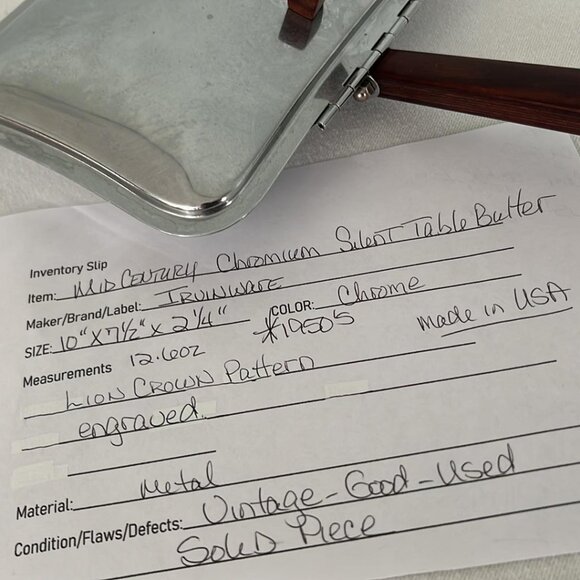 Inventory Slip
Item: MID CENTURY Chromium Silent Table Butter
Maker/Brand/Label: IRVINWARE
SIZE: 10" X 7 1/2" X 2 1/4" COLOR: Chrome
Measurements 12.6oz *1950's made in USA
LION CROWN Pattern
engraved.
Material: Metal
Condition/Flaws/Defects: Vintage - Good - Used
Solid Piece